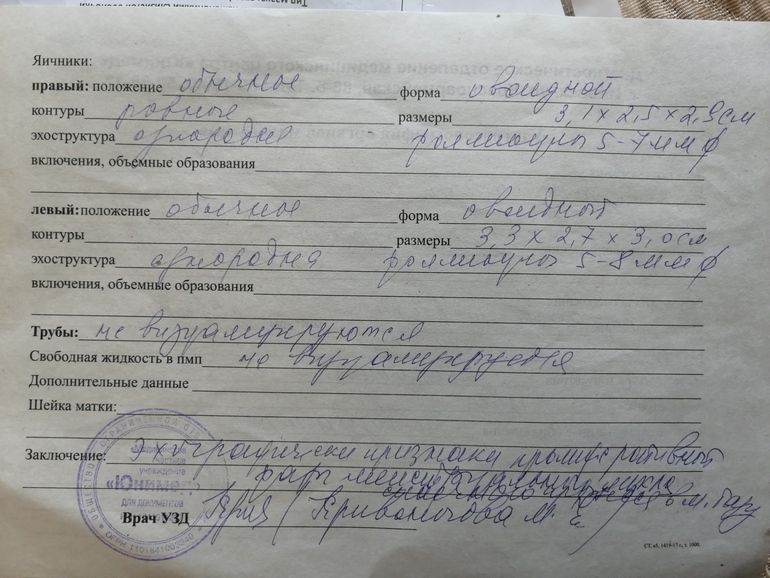 Яичники:
правый: положение обычное форма овоидной
контуры ровные размеры 3,1 х 2,5 х 2,9 см
эхоструктура однородная фолликулы 5-7 мм ф
включения, объемные образования
левый: положение обычное форма овоидной
контуры размеры 3,3 х 2,7 х 3,0 см
эхоструктура однородная фолликулы 5-8 мм ф
включения, объемные образования
Трубы: не визуализируются
Свободная жидкость в пмп не визуализируется
Дополнительные данные
Шейка матки:
Заключение: Эхографически признаки пролиферативной
фазы менструального цикла
Врач УЗД Кривоногова М.
«Юнимед»
ДЛЯ ДОКУМЕНТОВ